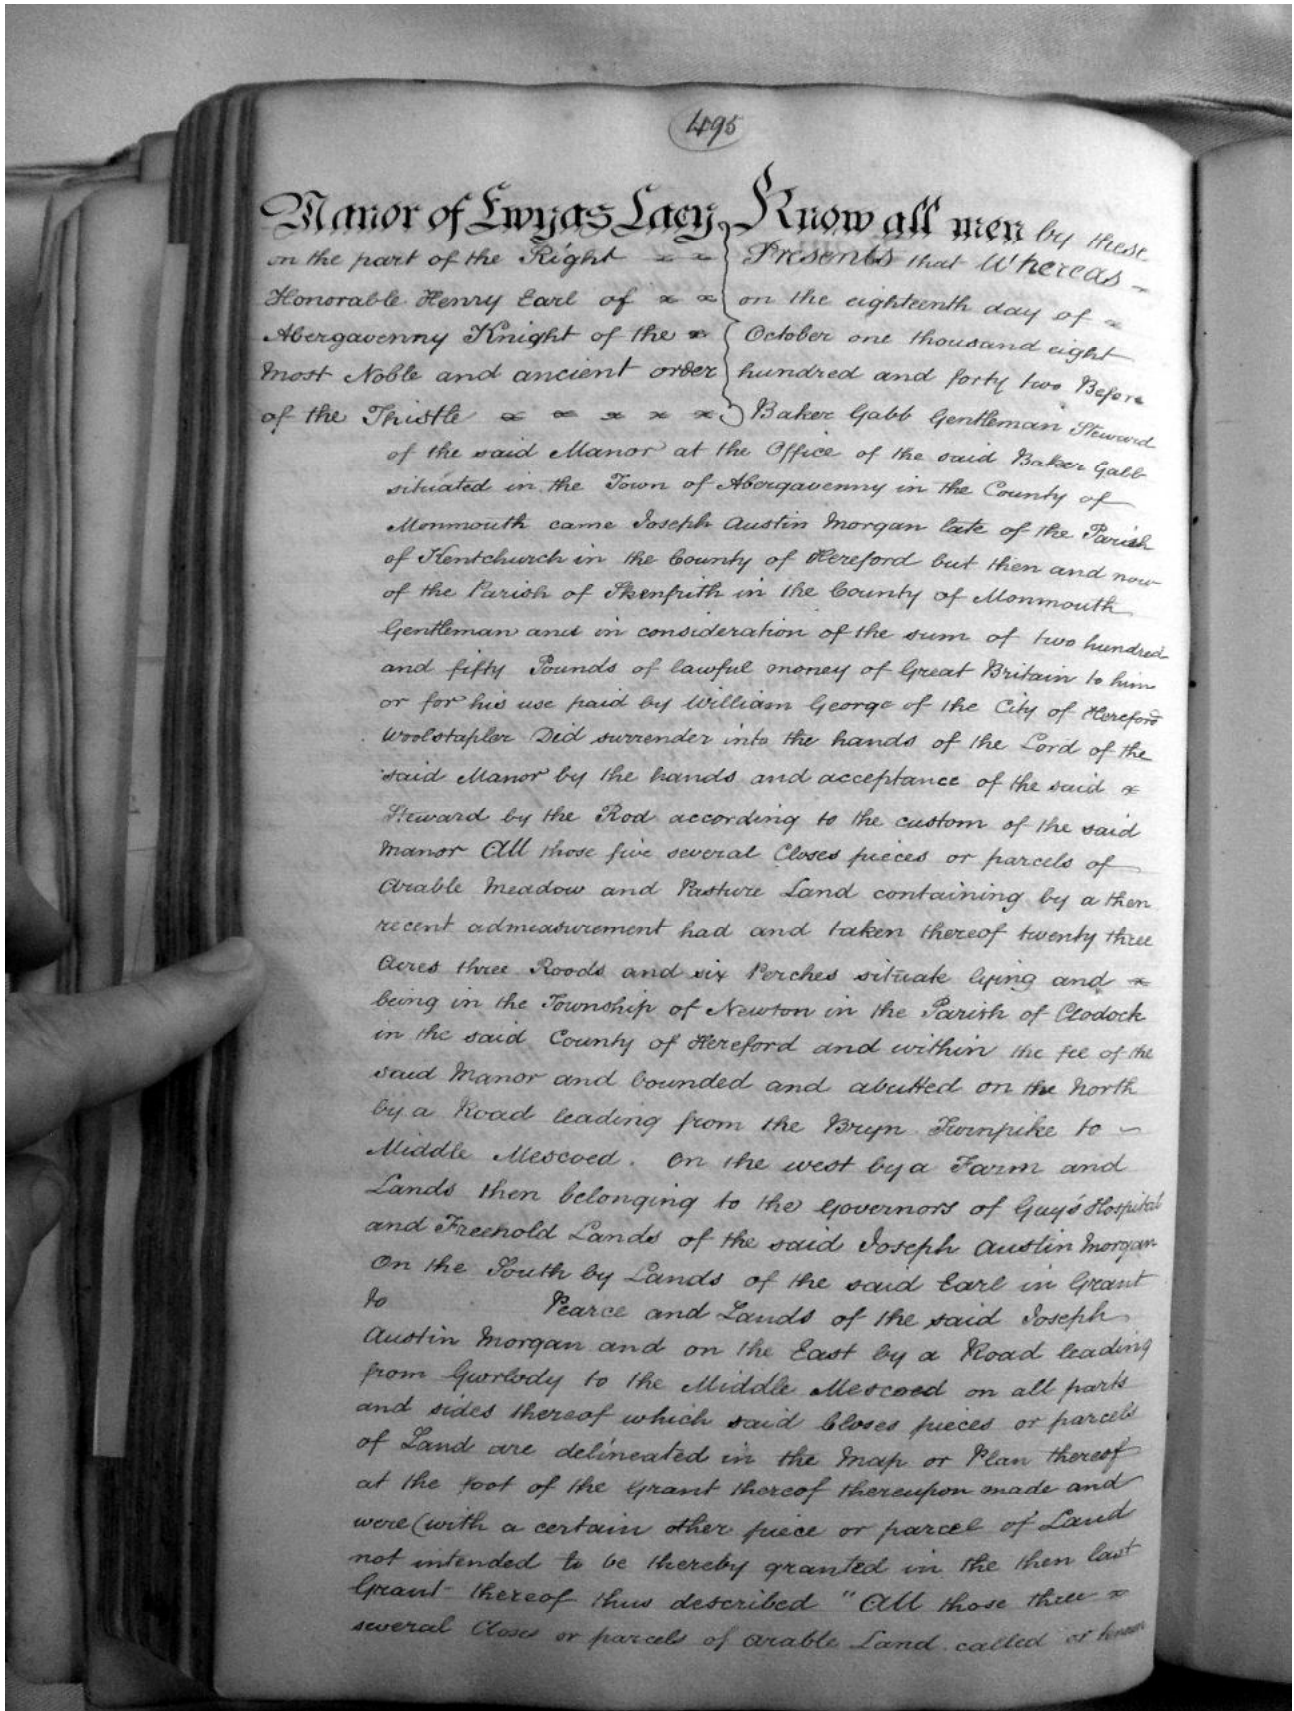 495
Manor of Ewyas Lacy
on the part of the Right
Honorable Henry Earl of
Abergavenny Knight of the
Most Noble and ancient order
of the Thistle
Know all men by these
Presents that Whereas
on the eighteenth day of
October one thousand eight
hundred and forty two Before
Baker Gabb Gentleman Steward
of the said Manor at the Office of the said Baker Gabb
situated in the Town of Abergavenny in the County of
Monmouth came Joseph Austin Morgan late of the Parish
of Kentchurch in the County of Hereford but then and now
of the Parish of Skenfrith in the County of Monmouth
Gentleman and in consideration of the sum of two hundred
and fifty Pounds of lawful money of Great Britain to him
or for his use paid by William George of the City of Hereford
Woolstapler Did surrender into the hands of the Lord of the
said Manor by the hands and acceptance of the said
Steward by the Rod according to the custom of the said
Manor All those five several Closes pieces or parcels of
Arable Meadow and Pasture Land containing by a then
recent admeasurement had and taken thereof twenty three
Acres three Roods and six Perches situate lying and
being in the Township of Newton in the Parish of Clodock
in the said County of Hereford and within the fee of the
said Manor and bounded and abutted on the North
by a Road leading from the Bryn Turnpike to
Middle Mescoed. On the west by a Farm and
Lands then belonging to the Governors of Guy's Hospital
and Freehold Lands of the said Joseph Austin Morgan
On the South by Lands of the said Earl in Grant
to Pearce and Lands of the said Joseph
Austin Morgan and on the East by a Road leading
from Gwrlody to the Middle Mescoed on all parts
and sides thereof which said Closes pieces or parcels
of Land are delineated in the Map or Plan thereof
at the foot of the Grant thereof thereupon made and
were (with a certain other piece or parcel of Land
not intended to be thereby granted in the then last
Grant thereof thus described "All those three
several Closes or parcels of Arable Land called or known